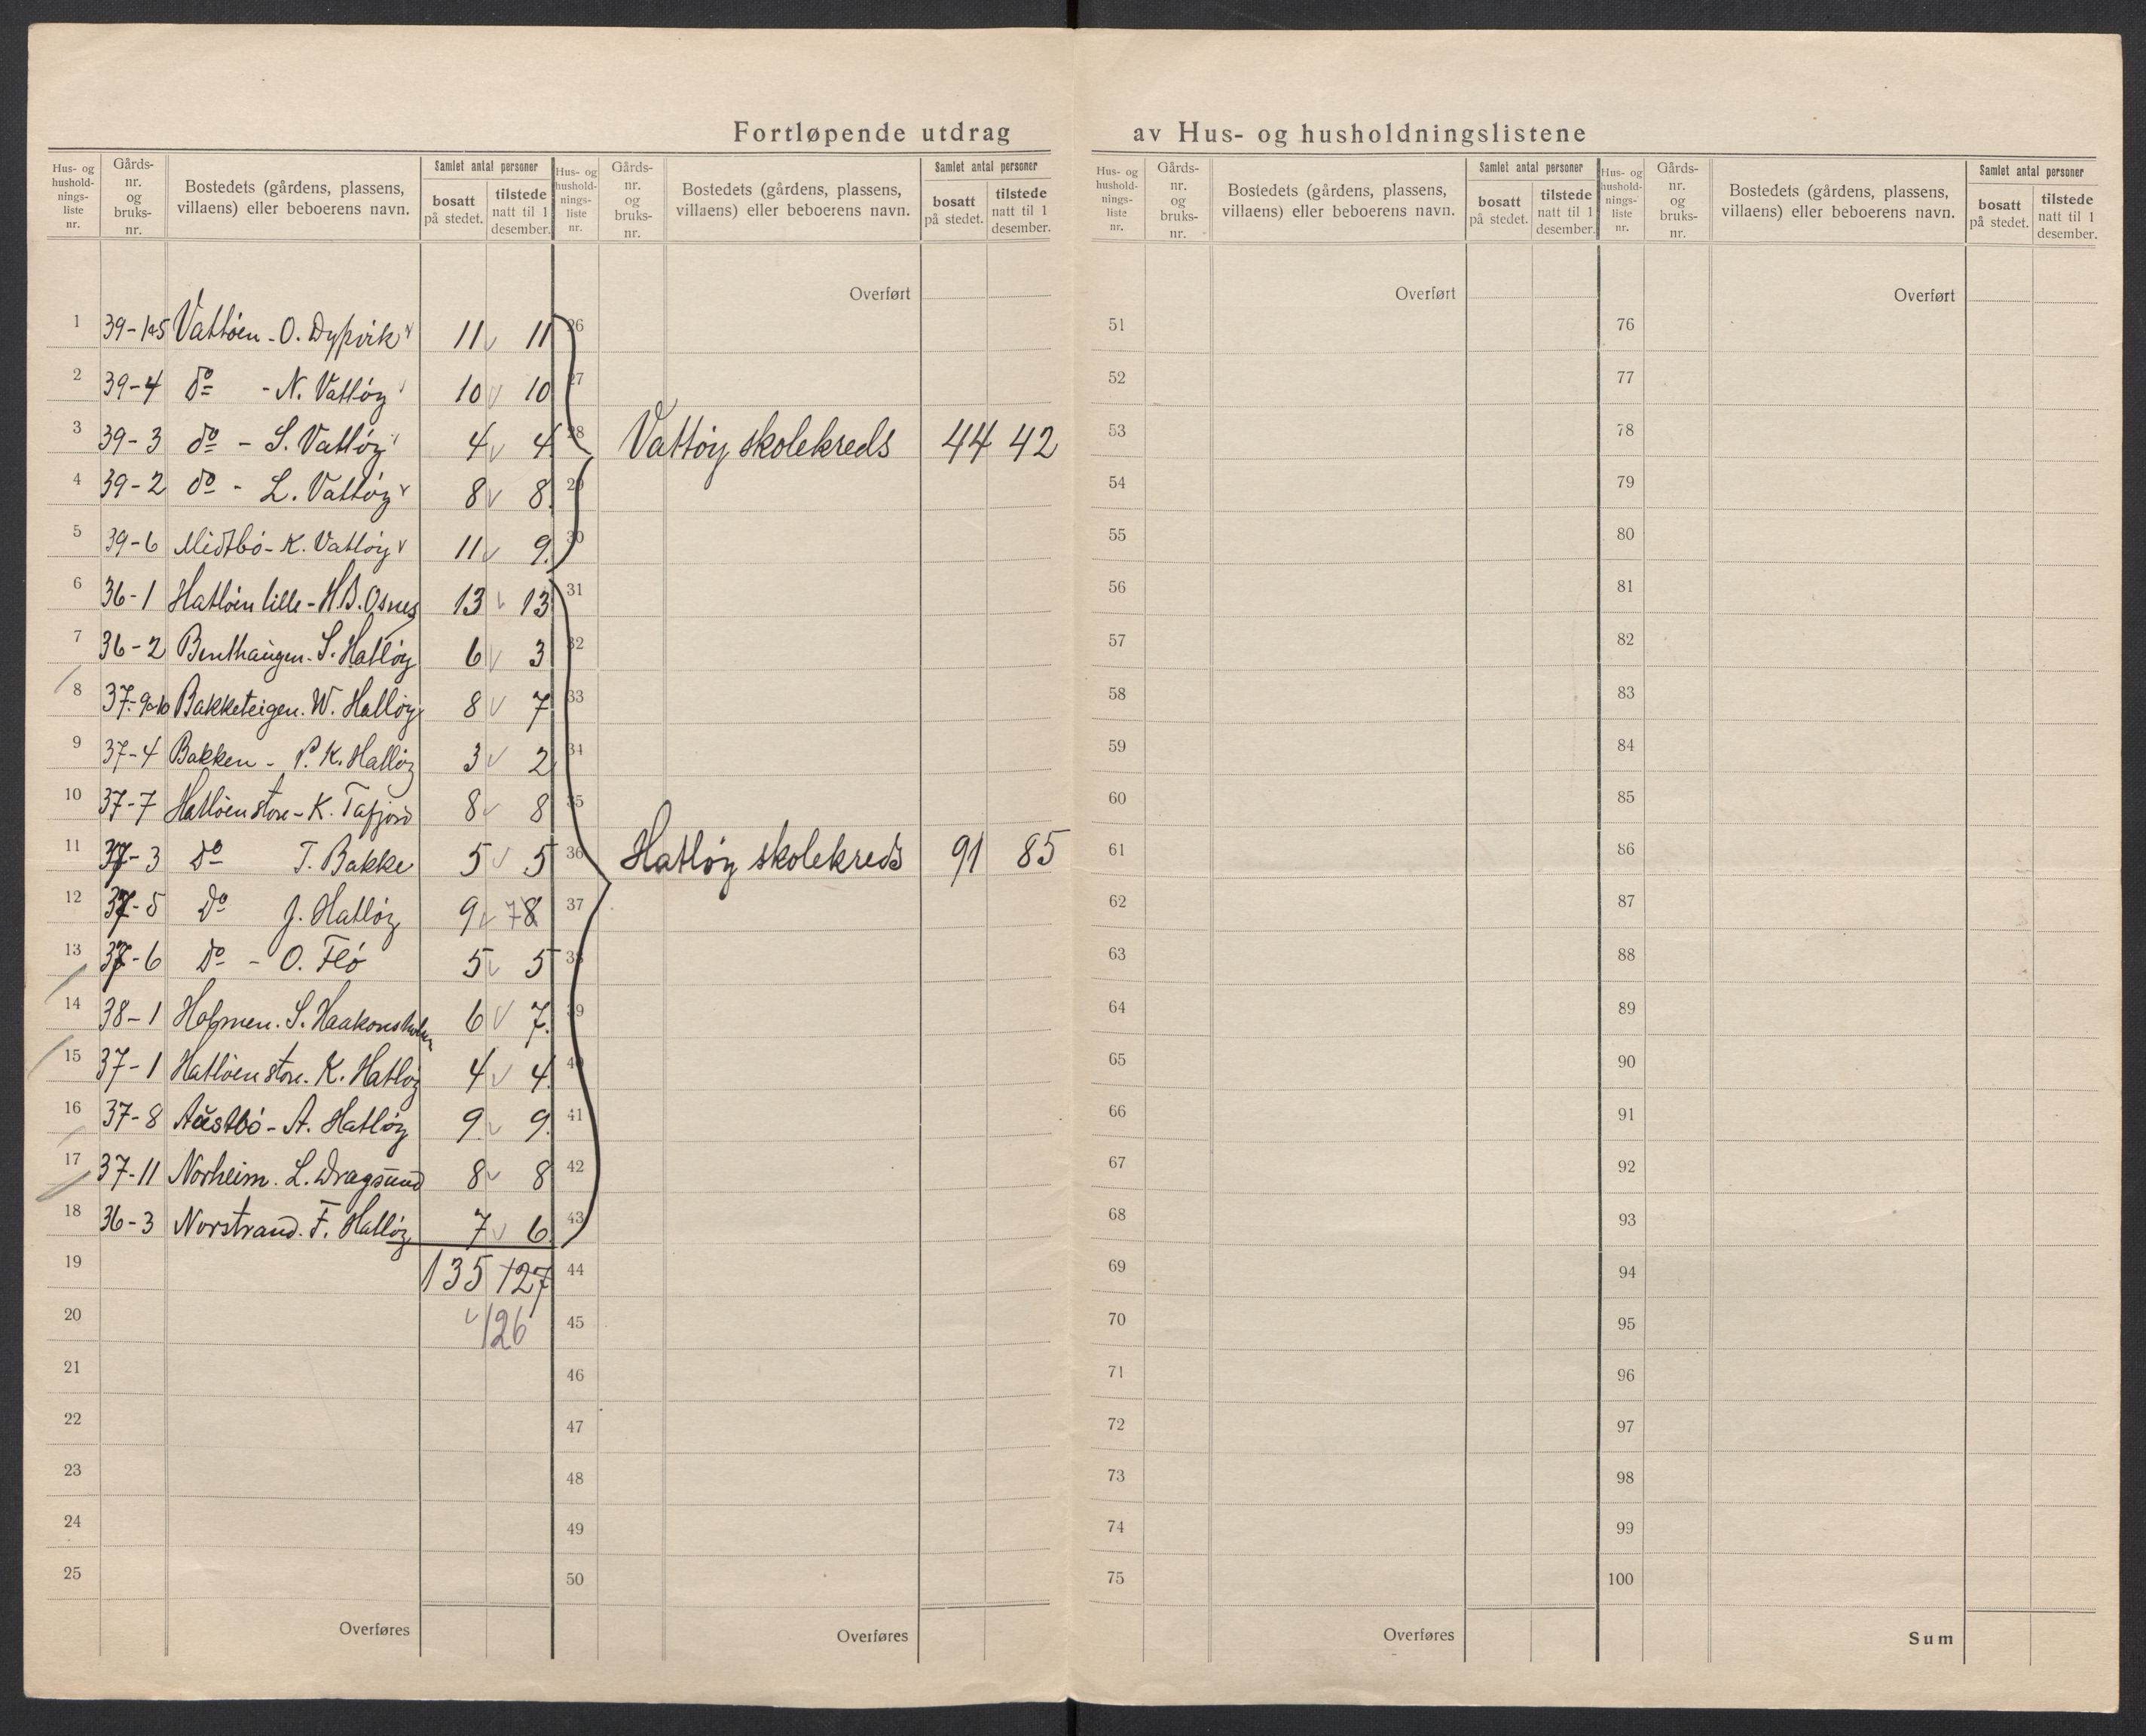 Fortløpende utdrag av Hus- og husholdningslistene
Hus- og hushold-nings-liste nr. Gårds-nr. og bruks-nr. Bostedets (gårdens, plassens, villaens) eller beboerens navn. Samlet antal personer bosatt på stedet. tilstede natt til 1 desember.
Hus- og hushold-nings-liste nr. Gårds-nr. og bruks-nr. Bostedets (gårdens, plassens, villaens) eller beboerens navn. Samlet antal personer bosatt på stedet. tilstede natt til 1 desember.
Hus- og hushold-nings-liste nr. Gårds-nr. og bruks-nr. Bostedets (gårdens, plassens, villaens) eller beboerens navn. Samlet antal personer bosatt på stedet. tilstede natt til 1 desember.
Hus- og hushold-nings-liste nr. Gårds-nr. og bruks-nr. Bostedets (gårdens, plassens, villaens) eller beboerens navn. Samlet antal personer bosatt på stedet. tilstede natt til 1 desember.
Overført Overført Overført
1 39-1o5 Vattöen - O. Dypvik 11 11 26 51 76
2 39-4 do - N. Vattöy 10 10 27 52 77
3 39-3 do - S. Vattöy 4 4 28 Vattöy skolekreds 44 42 53 78
4 39-2 do - L. Vattöy 8 8 29 54 79
5 39-6 Midtbö - K. Vattöy 11 9 30 55 80
6 36-1 Hatlöen lille - H.B. Osnes 13 13 31 56 81
7 36-2 Benthaugen. S. Hatlöy 6 3 32 57 82
8 37-9o10 Bakketeigen. W. Hatlöy 8 7 33 58 83
9 37-4 Bakken - P. K. Hatlöy 3 2 34 59 84
10 37-7 Hatlöen store - K. Tafjord 8 8 35 60 85
11 37-3 do T. Bakke 5 5 36 Hatlöy skolekreds 91 85 61 86
12 37-5 do J. Hatlöy 9 7 8 37 62 87
13 37-6 do - O. Flö 5 5 38 63 88
14 38-1 Holmen. S. Haakonsholm 6 7 39 64 89
15 37-1 Hatlöen store. K. Hatlöy 4 4 40 65 90
16 37-8 Austbö - A. Hatlöy 9 9 41 66 91
17 37-11 Norheim. L. Dragsund 8 8 42 67 92
18 36-3 Norstrand. F. Hatlöy 7 6 43 68 93
19 135 127 44 69 94
20 126 45 70 95
21 46 71 96
22 47 72 97
23 48 73 98
24 49 74 99
25 50 75 100
Overføres Overføres Overføres Sum